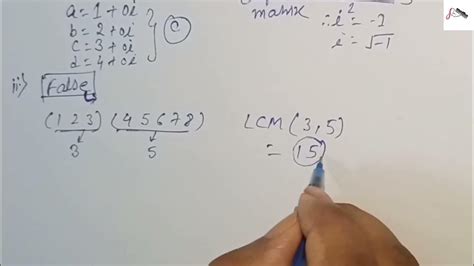 a = 1 + 0i
b = 2 + 0i
c = 3 + 0i
d = 4 + 0i
C
matrix
∴ i² = -1
i = √-1
iii) False
(1 2 3) (4 5 6 7 8)
3 5
LCM (3,5)
= 15